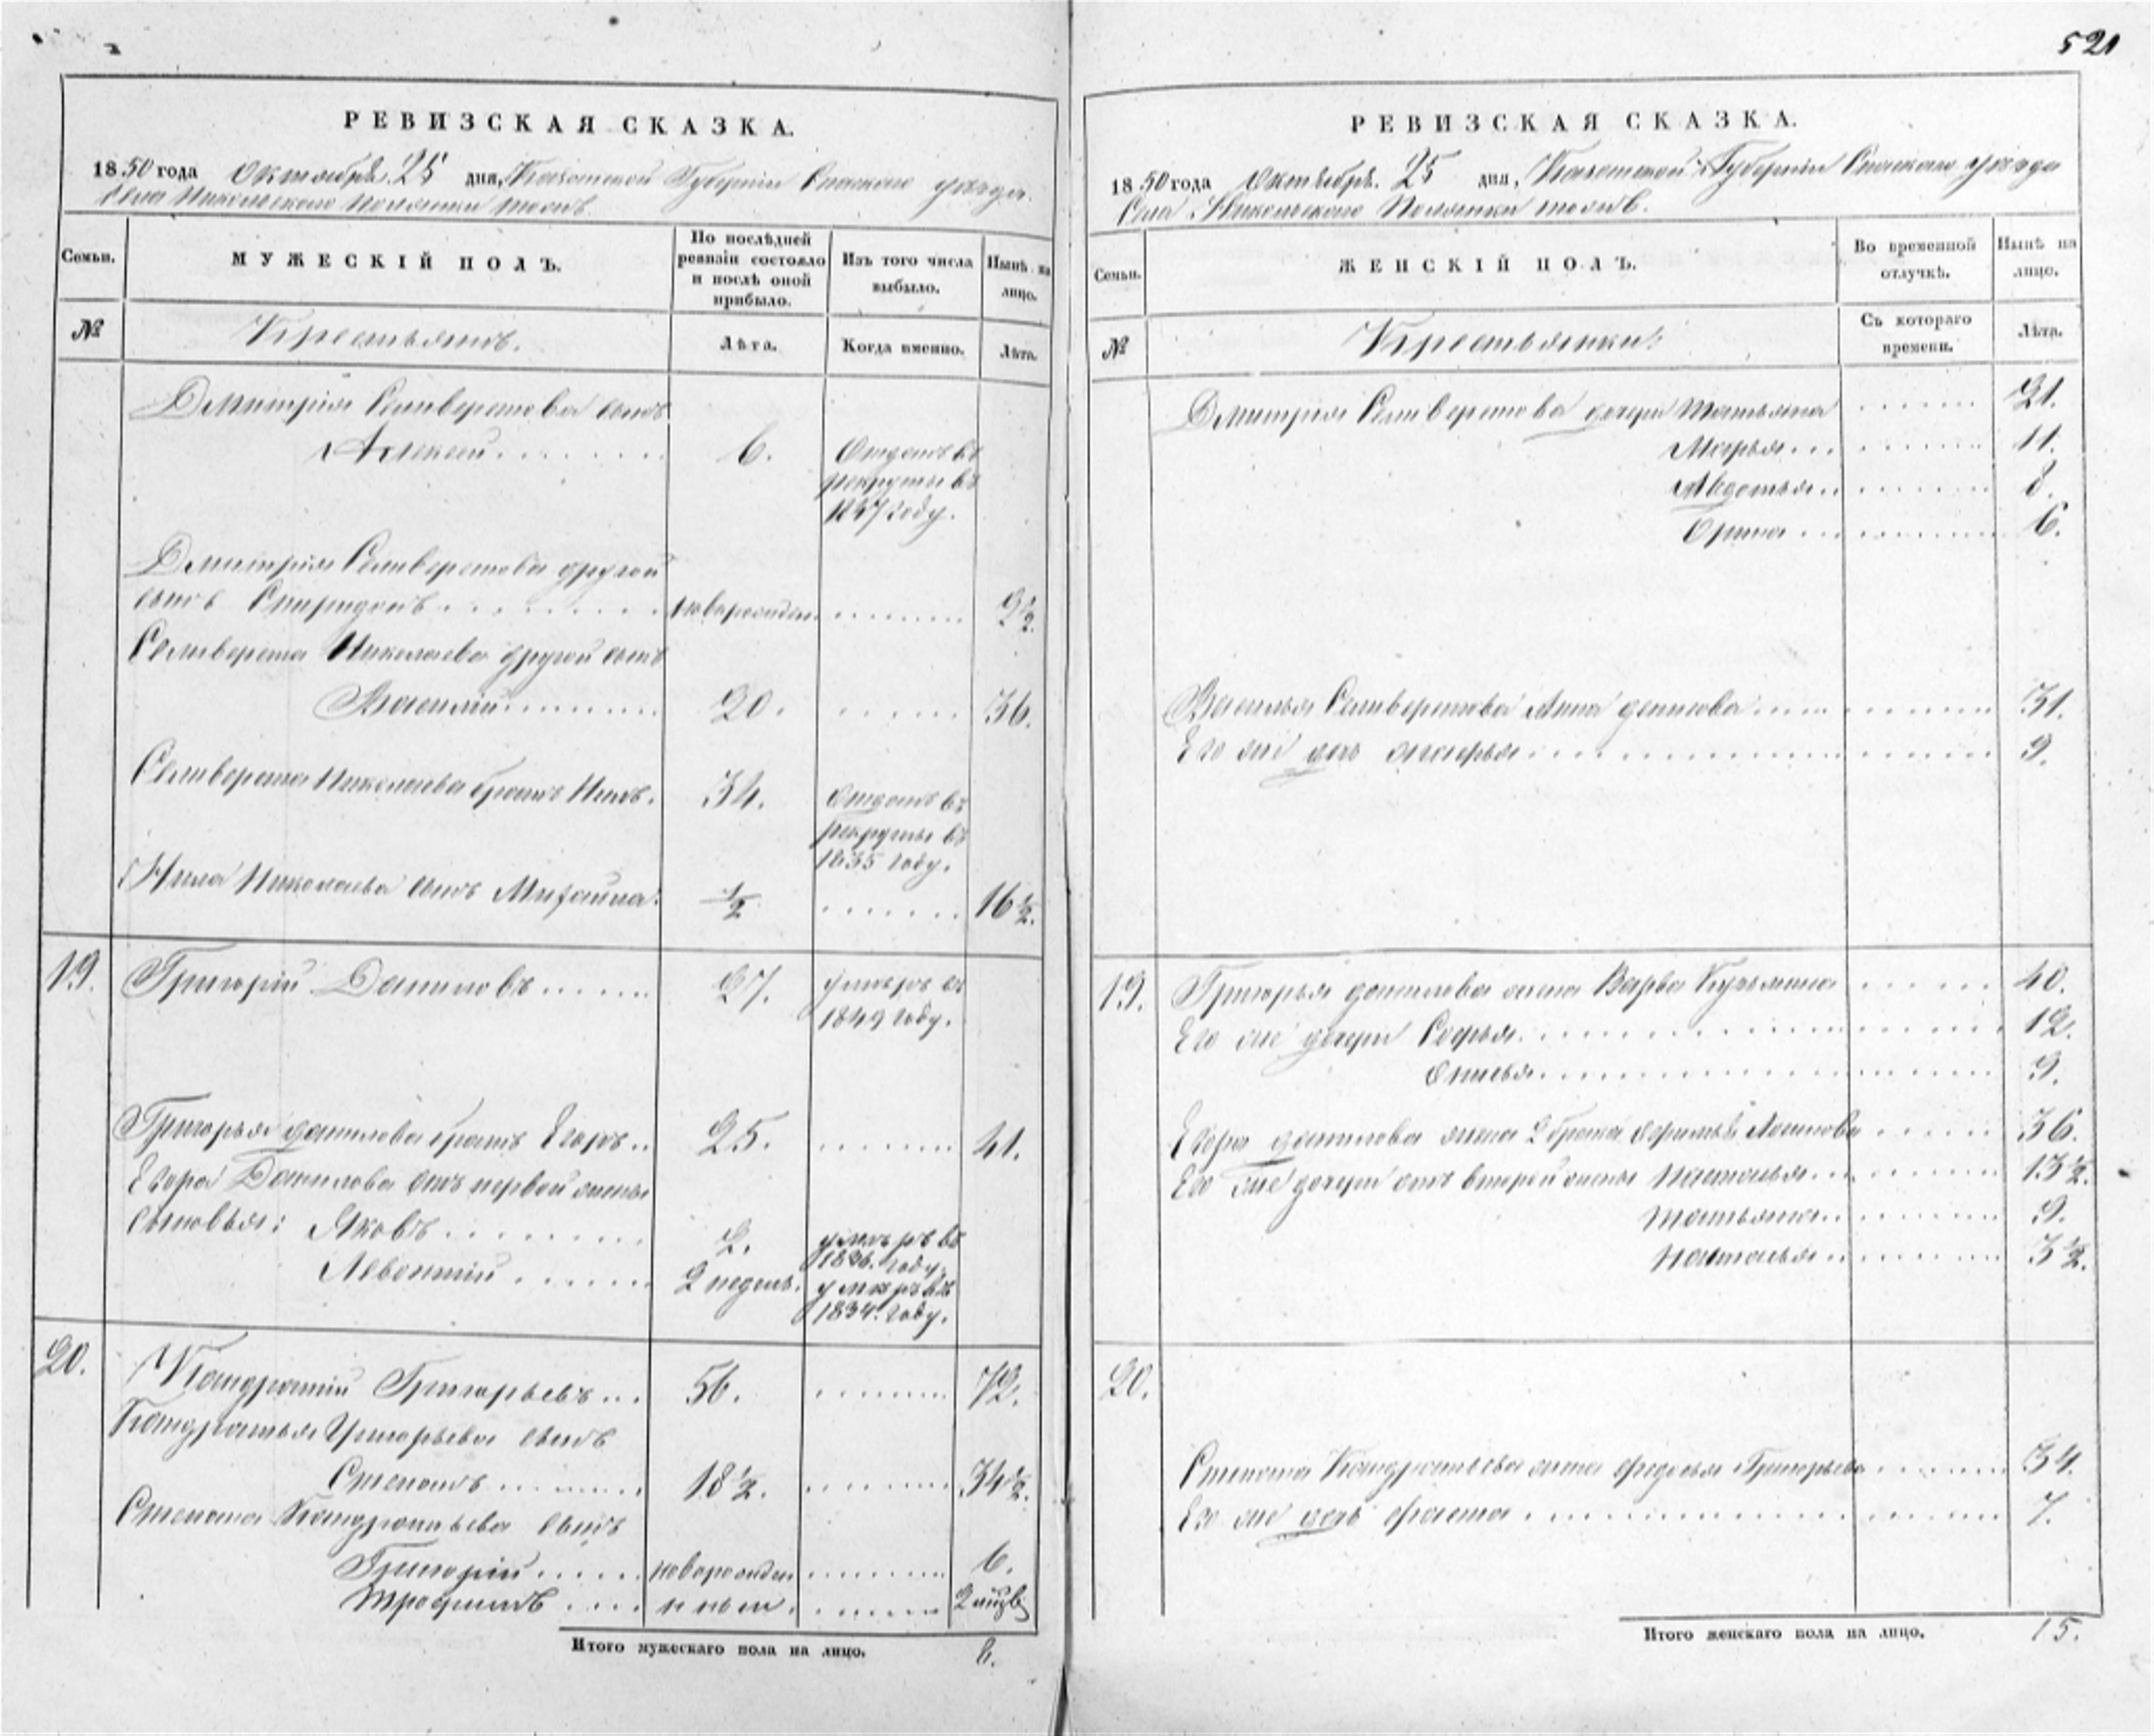 521
РЕВИЗСКАЯ СКАЗКА.
1850 года Октября 25 дня, Казанской Губернии Спаскаго уезда
Села Никольскаго Полянки тожъ.
Семьи.
МУЖЕСКІЙ ПОЛЪ.
По послѣдней ревизіи состояло и послѣ оной прибыло.
Изъ того числа выбыло.
Нынѣ на лицо.
№
Крестьянъ.
Лѣта.
Когда именно.
Лѣта.
Дмитрія Селиверстова сынъ
Алексей 6. Отданъ въ
рекруты въ
1847 году.
Дмитрія Селиверстова другой
сынъ Спиридонъ новорожден 9 1/2.
Селиверста Николаева другой сынъ
Василій 20. 36.
Селиверста Николаева братъ Нилъ. 34. Отданъ въ
рекруты въ
1835 году.
Нила Николаева сынъ Михайла. 1/2 16 1/2.
19. Григорій Даниловъ 27. умеръ въ
1849 году.
Григорья данилова братъ Егоръ 25. 41.
Егора Данилова отъ первой жены
сыновья: Яковъ 2. умеръ въ
1836. году.
Левонтій 2 недель. умеръ въ
1834. году.
20. Кандратій Григорьевъ 56. 72.
Кандратья Григорьева сынъ
Степанъ 18 1/2. 34 1/2.
Степана Кандратьева сынъ
Григорій новорожден 6.
Трофимъ ныи.
Итого мужескаго пола на лицо. 8.
РЕВИЗСКАЯ СКАЗКА.
1850 года Октября. 25 дня, Казанской Губернии Спаскаго уезда
Села Никольскаго Полянки тожъ.
Семьи.
ЖЕНСКІЙ ПОЛЪ.
Во временной отлучкѣ.
Нынѣ на лицо.
№
Крестьянки:
Съ котораго времени.
Лѣта.
Дмитрія Селиверстова дочери Татьяна 21.
Марья 11.
Авдотья 8.
Орина 6.
Василья Селиверстова Анна денисова 31.
Его же дочь Марья 9.
19. Григорья данилова жена Варва Кузьмина 40.
Его же дочери Софья 12.
Онисья 9.
Егора данилова жена 2 брака 36.
Его же дочери отъ второй жены Наталья 13 1/2.
Татьяна 9.
Наталья 3 1/2.
20.
Степана Кандратьева жена Федосья Григорьева 34.
Его же дочь 7.
Итого женскаго пола на лицо. 15.